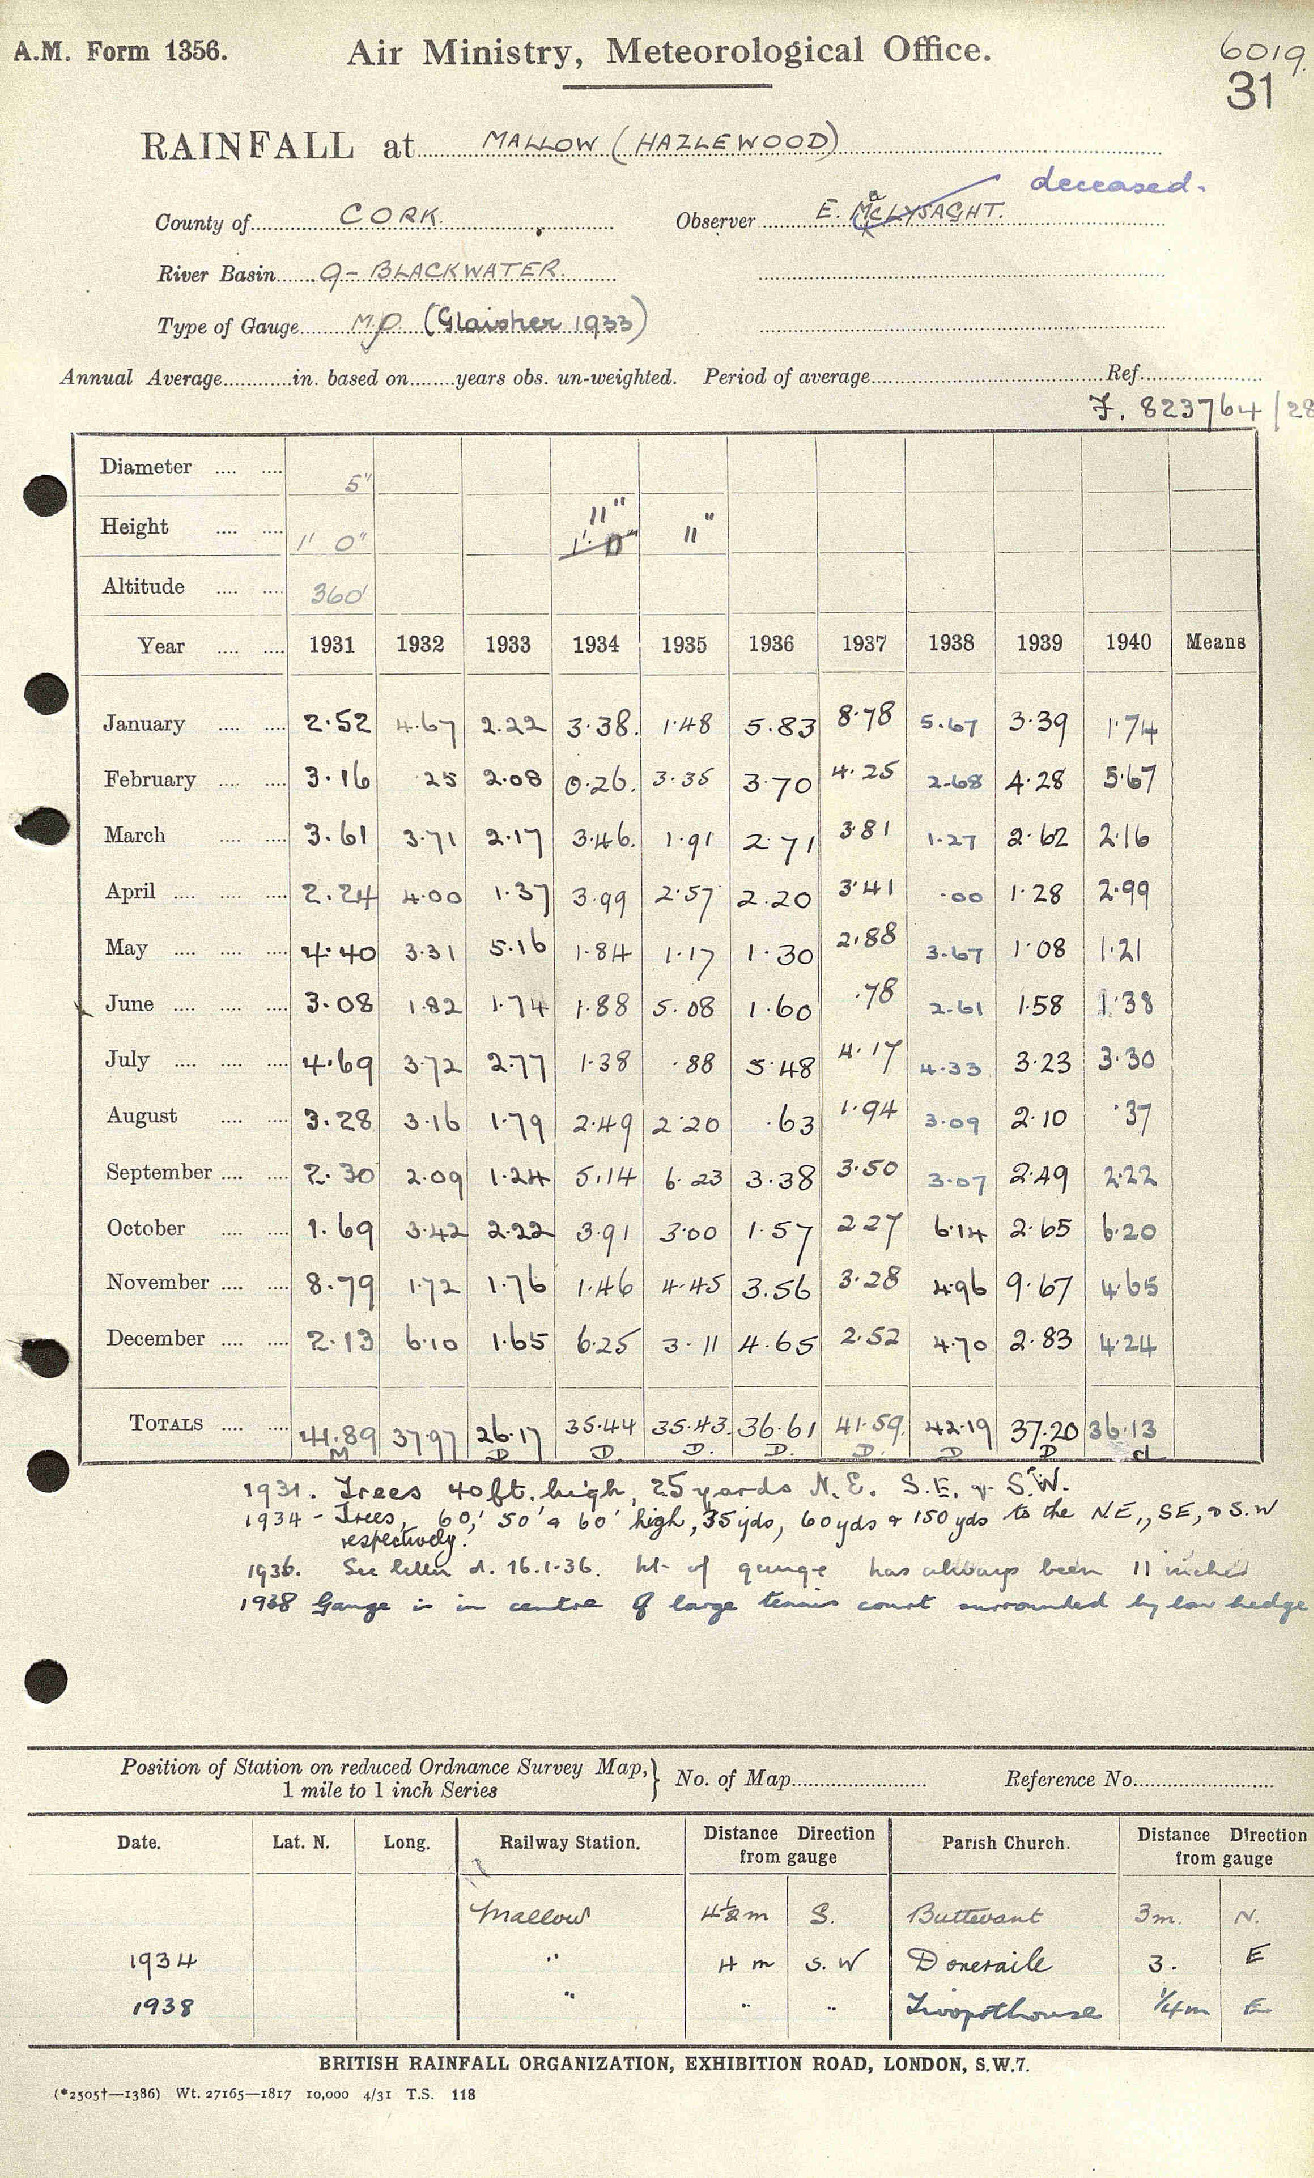 A.M. Form 1356.
Air Ministry, Meteorological Office.
6019.
31
RAINFALL at MALLOW (HAZLEWOOD)
deceased.
County of CORK. Observer E. McLYSAGHT.
River Basin 9 - BLACKWATER.
Type of Gauge M.O. (Glaisher 1933)
Annual Average in. based on years obs. un-weighted. Period of average Ref.
F. 823764/28
Diameter 5"
Height 1' 0" 11" 1' 0" 11"
Altitude 360'
Year 1931 1932 1933 1934 1935 1936 1937 1938 1939 1940 Means
January 2.52 4.67 2.22 3.38. 1.48 5.83 8.78 5.67 3.39 1.74
February 3.16 .25 2.08 0.26. 3.35 3.70 4.25 2.68 4.28 5.67
March 3.61 3.71 2.17 3.46. 1.91 2.71 3.81 1.27 2.62 2.16
April 2.24 4.00 1.37 3.99 2.57 2.20 3.41 .00 1.28 2.99
May 4.40 3.31 5.16 1.84 1.17 1.30 2.88 3.67 1.08 1.21
June 3.08 1.82 1.74 1.88 5.08 1.60 .78 2.61 1.58 1.38
July 4.69 3.72 2.77 1.38 .88 5.48 4.17 4.33 3.23 3.30
August 3.28 3.16 1.79 2.49 2.20 .63 1.94 3.09 2.10 .37
September 2.30 2.09 1.24 5.14 6.23 3.38 3.50 3.07 2.49 2.22
October 1.69 3.42 2.22 3.91 3.00 1.57 2.27 6.14 2.65 6.20
November 8.79 1.72 1.76 1.46 4.45 3.56 3.28 4.96 9.67 4.65
December 2.13 6.10 1.65 6.25 3.11 4.65 2.52 4.70 2.83 4.24
TOTALS 41.89 37.97 26.17 35.44 35.43. 36.61 41.59. 42.19 37.20 36.13
M D D. D. D. D. D D d
1931. Trees 40ft. high, 25 yards N.E. S.E. & S.W.
1934 - Trees, 60,' 50' & 60' high, 35 yds, 60 yds & 150 yds to the NE,, SE, & S.W
respectively.
1936. See letter d. 16.1.36. ht. of gauge has always been 11 inches
1938 Gauge is in centre of large tennis court surrounded by low hedge
Position of Station on reduced Ordnance Survey Map,
1 mile to 1 inch Series
No. of Map Reference No.
Date. Lat. N. Long. Railway Station. Distance Direction from gauge Parish Church. Distance Direction from gauge
Mallow 4½ m S. Buttevant 3m. N.
1934 " 4 m S. W Doneraile 3. E
1938 " " " Twopothouse 1/4m E
BRITISH RAINFALL ORGANIZATION, EXHIBITION ROAD, LONDON, S.W.7.
(*2505†—1386) Wt. 27165—1817 10,000 4/31 T.S. 118